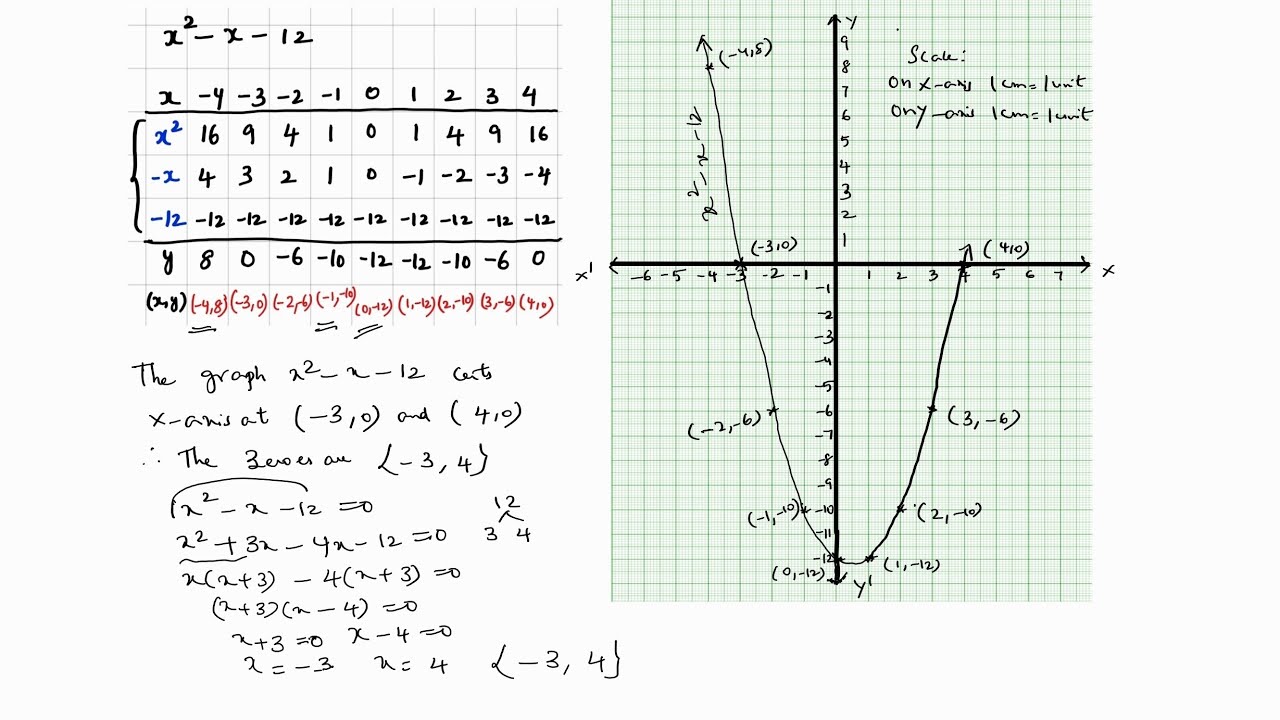 x² - x - 12
x -4 -3 -2 -1 0 1 2 3 4
x² 16 9 4 1 0 1 4 9 16
-x 4 3 2 1 0 -1 -2 -3 -4
-12 -12 -12 -12 -12 -12 -12 -12 -12 -12
y 8 0 -6 -10 -12 -12 -10 -6 0
(x,y) (-4,8) (-3,0) (-2,-6) (-1,-10) (0,-12) (1,-12) (2,-10) (3,-6) (4,0)
The graph x² - x - 12 cuts
x-axis at (-3,0) and (4,0)
∴ The zeroes are {-3, 4}
x² - x - 12 = 0
12
x² + 3x - 4x - 12 = 0
3 4
x(x+3) - 4(x+3) = 0
(x+3)(x-4) = 0
x+3 = 0 x-4 = 0
x = -3 x = 4 {-3, 4}
Y
Scale:
On X-axis 1cm = 1unit
On Y-axis 1cm = 1unit
9
8
7
6
5
4
3
2
1
(-4,8)
x² - x - 12
(-3,0)
(4,0)
X' -6 -5 -4 -3 -2 -1 1 2 3 4 5 6 7 X
-1
-2
-3
-4
-5
-6
-7
-8
-9
-10
-11
-12
(-2,-6)
(3,-6)
(-1,-10)
(2,-10)
(0,-12)
(1,-12)
Y'